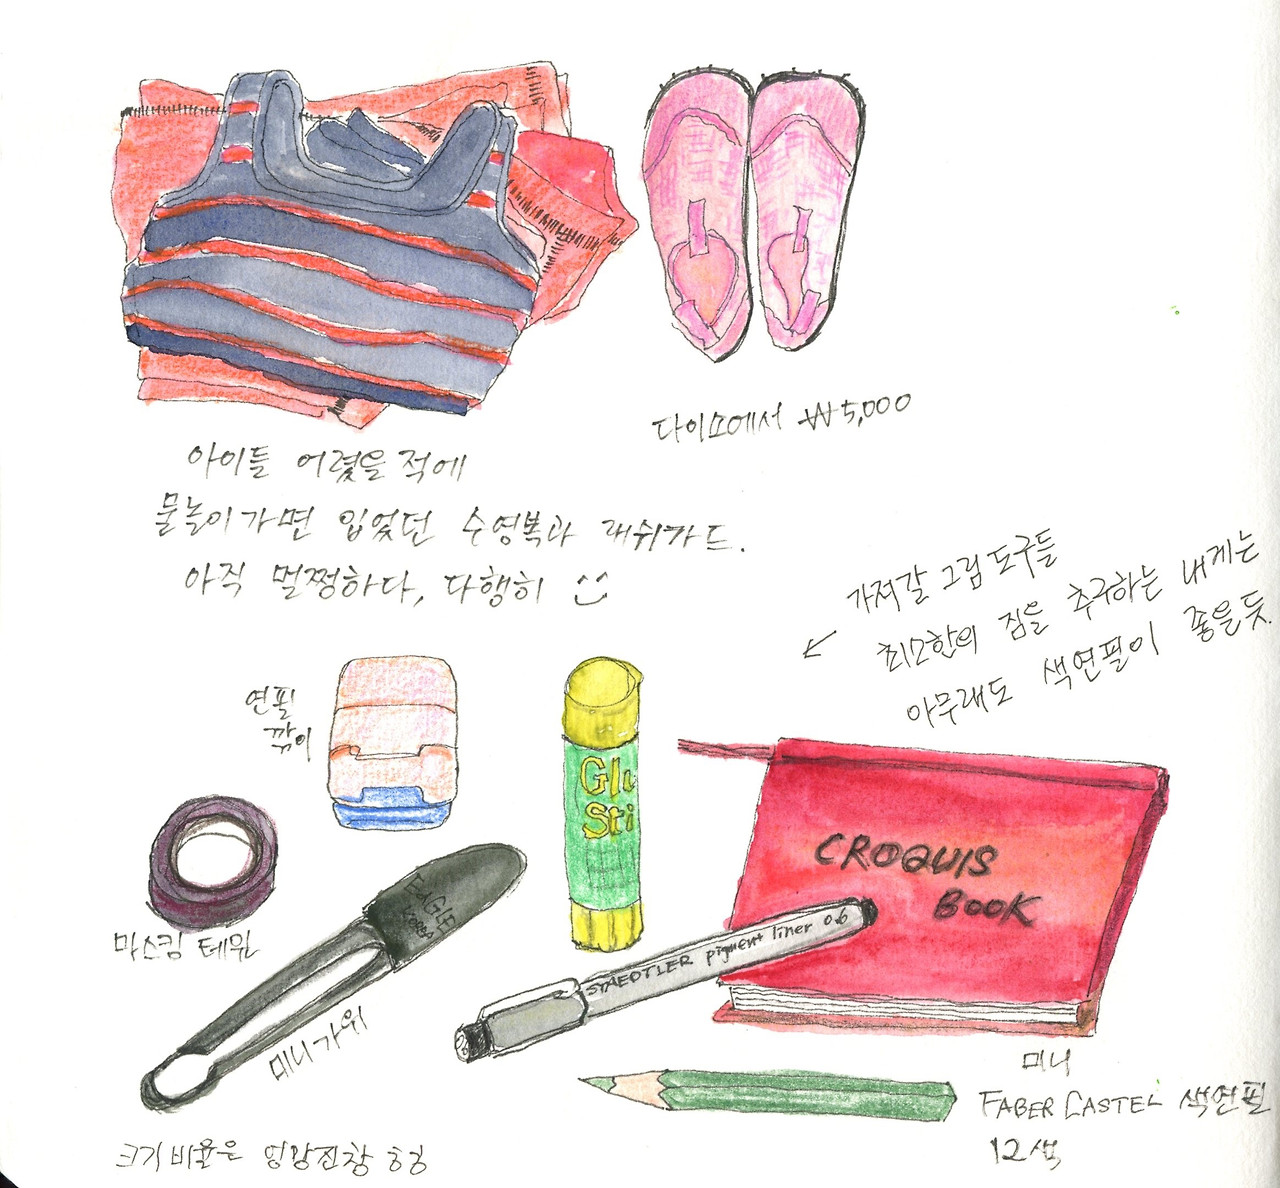 다이소에서 ₩5,000
아이들 어렸을 적에
물놀이가면 입었던 수영복과 래쉬가드.
아직 멀쩡하다, 다행히
가져갈 그림도구들
최소한의 짐을 추구하는 내게는
아무래도 색연필이 좋을듯.
연필
깎이
Glu
Sti
CROQUIS
BOOK
EAGLE
KOREA
마스킹 테잎
STAEDTLER pigment liner 0.6
미니가위
미니
FABER CASTEL 색연필
12색
크기비율은 엉망진창 헝